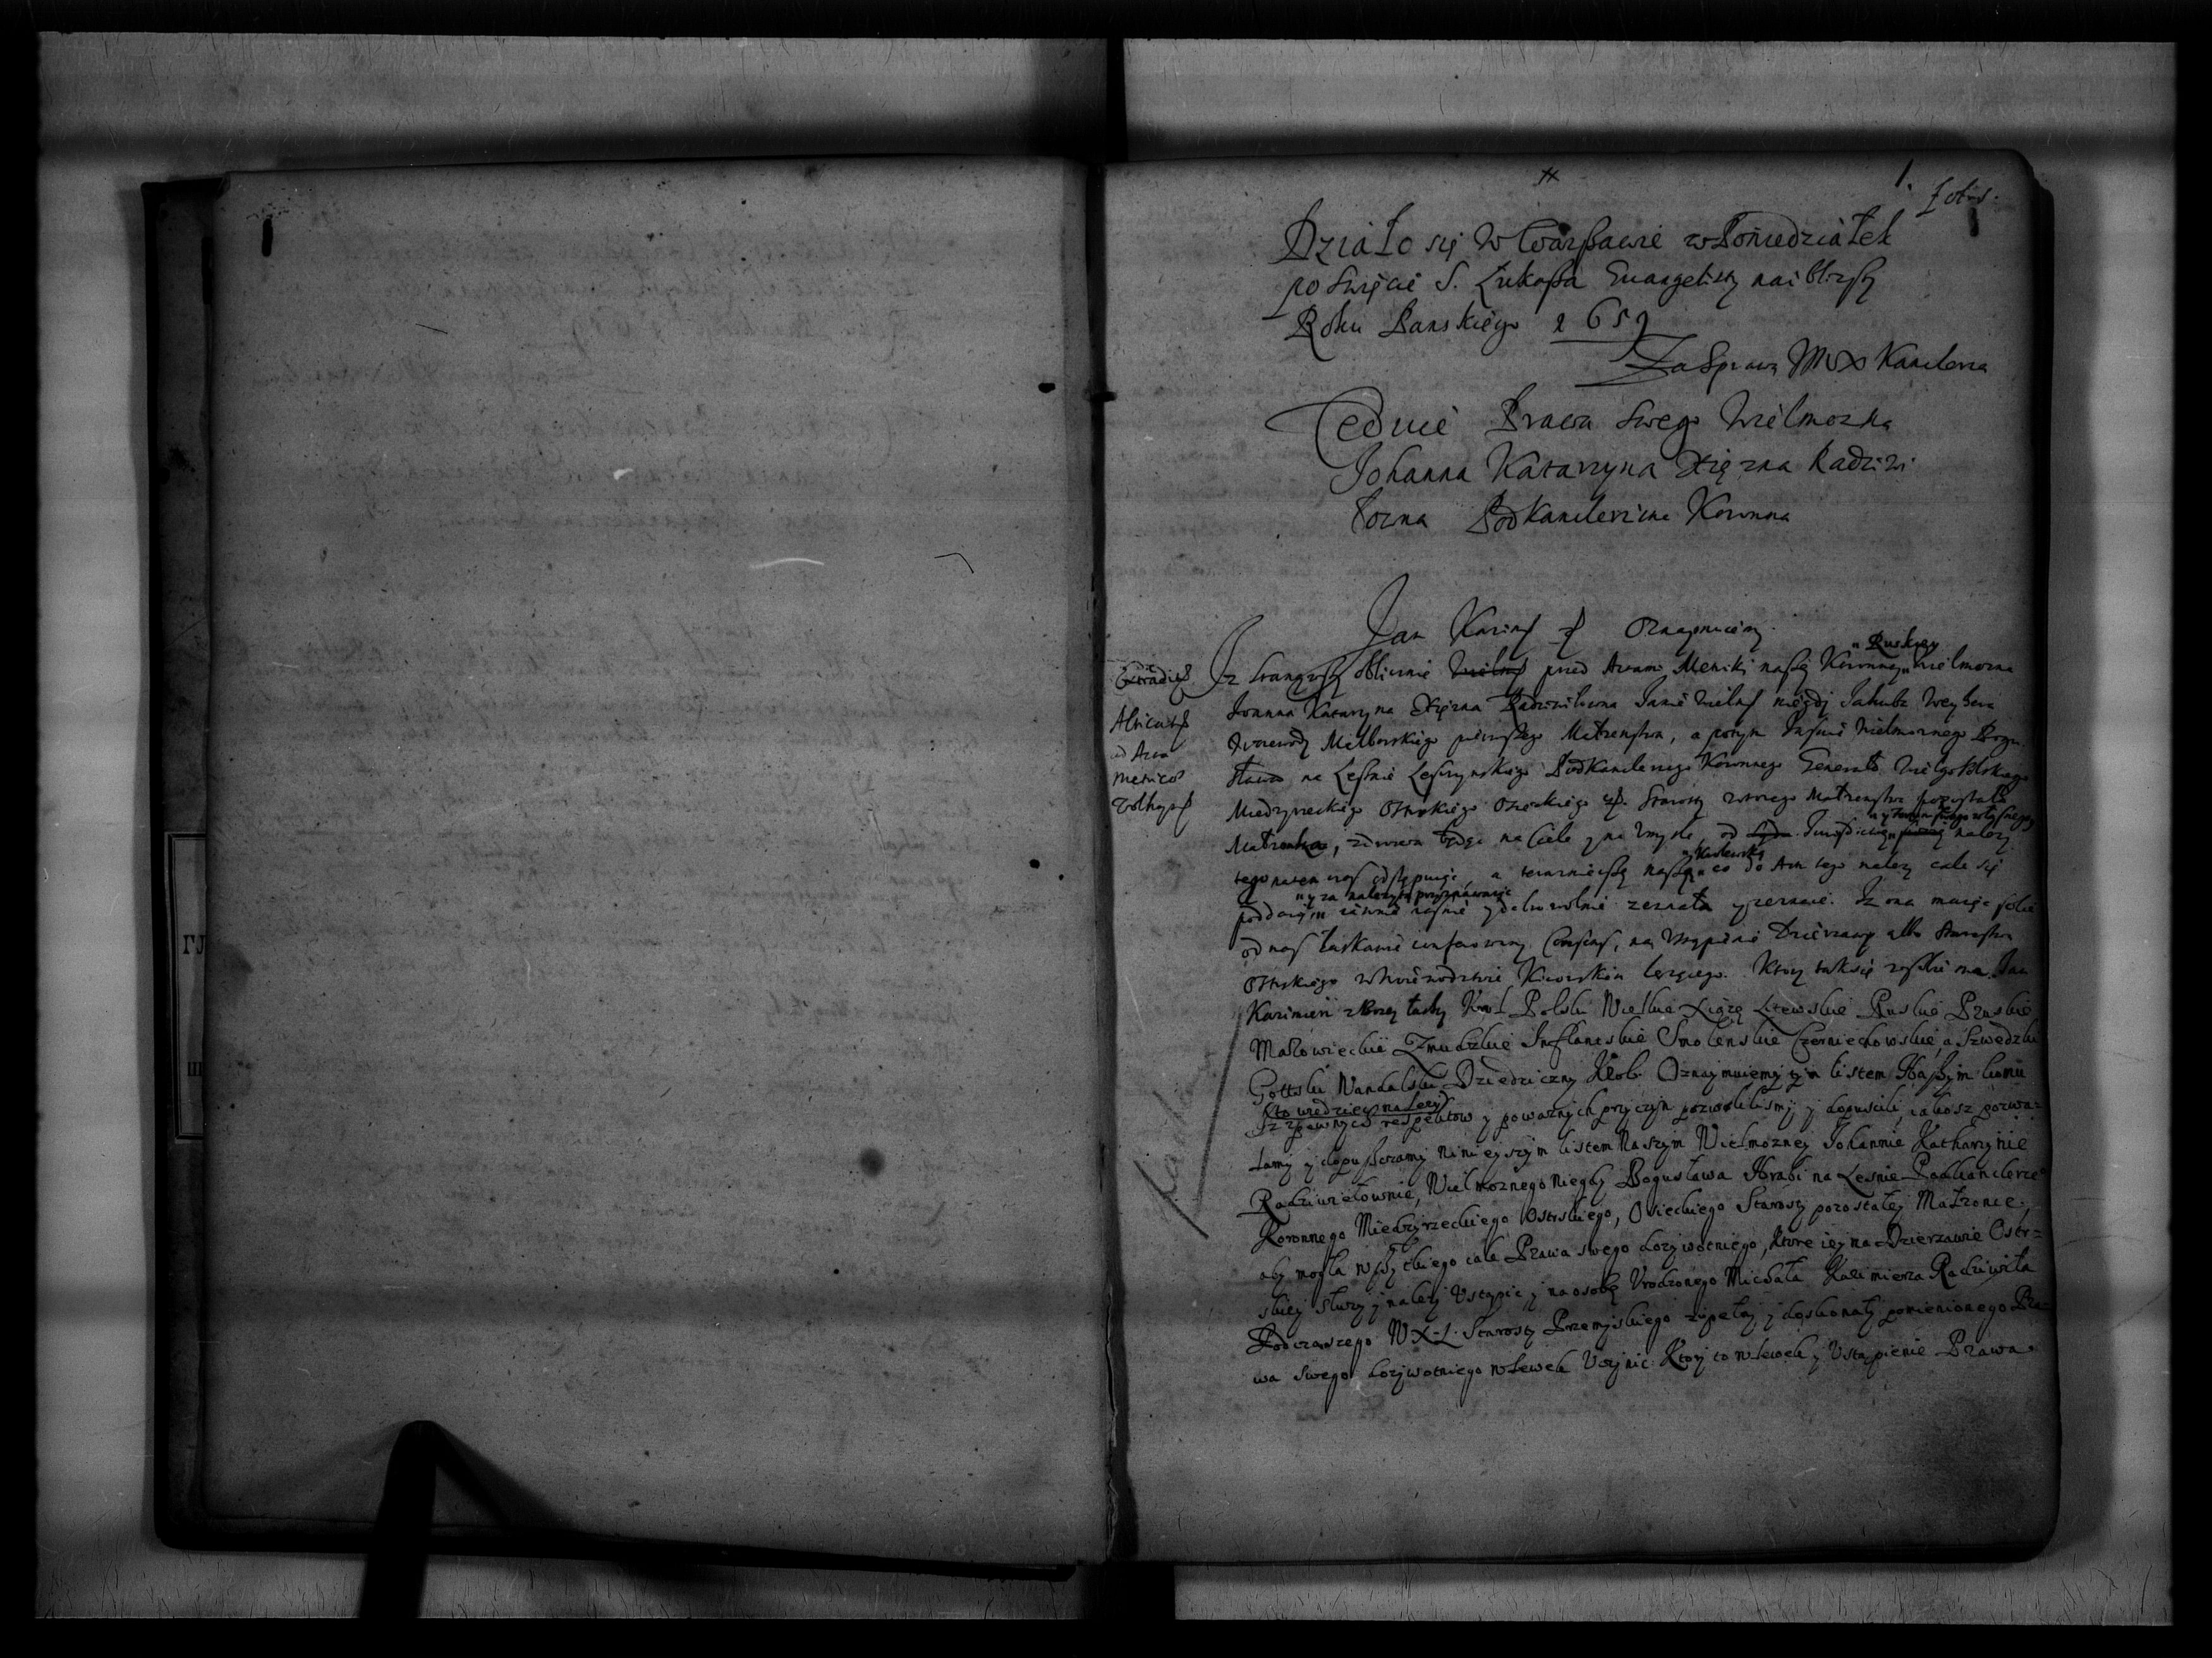 1.
Działo się w Warszawie w Poniedziałek
po swięcie S. Łukasza Euangelisty naiblizszy
Roku Panskiego 1659
Za Sprawą MWX Kanclerza
Ceduie Prawa swego Wielmozna
Johanna Katarzyna Xiężna Radziwi
łowna Podkanclerzina Koronna
Jan Kazimź Oznaymuiemy
Ruskiey
Iz stanąwszy oblicznie przed Aktami Metriki naszey Koronney Wielmozna
Joanna Katarzyna Xiężna Radziwiłowna Panie Wielmż niegdy Jakuba Weyhera
Woiewody Malborskiego pierwszego Małzenstwa, a potym Wielmoznego Bogu
sława na Lesznie Leszczynskiego Podkanclerzego Koronnego Generała Wielgopolskiego
Miedzyrzeckiego Ostrskiego Osieckiego Starosty wtorego Małzenstwa pozostała
Małzonka, zdrowa będąc na Ciele y na Umysle, od należ
tego na ten czas odstępuiąc, a teraznieyszey naszey co do Aktu tego nalezy cale się
y za nalezytą przyznawaiąc
poddaiąc iawnie iasnie y dobrowolnie zeznała y zeznaie. Iz ona maiąc sobie
od nas łaskawie conferowany Consens, na Ustąpienie Dzierzawy albo Starostwa
Ostrskiego w Woiewodztwie Kiiowskim lezącego. Ktory tak się w sobie ma. Jan
Kazimierz z Bozey łaski Krol Polski Wielkie Xiąze Litewskie Ruskie Pruskie
Mazowieckie Zmudzkie Inflanskie Smolenskie Czerniechowskie, a Szwedzki
Gottski Wandalski Dziedziczny Krol. Oznaymuiemy tym listem Naszym komu
to wiedziec nalezy
Iz z pewnych respektow y powaznych przyczyn pozwolilismy y dopuscili, iakosz pozwa=
lamy y dopuszczamy ninieyszym listem Naszym Wielmozney Johannie Katharzynie
Radziwiełownie, Wielmoznego niegdy Bogusława Hrabi na Lesnie Podkanclerze
Koronnego Miedzyrzeckiego Ostrskiego, Osieckiego Starosty pozostałey Małzonce,
aby mogła wszytkiego cale Prawa swego dozywotniego, ktore iey na Dzierzawie Ostr=
skiey słuzy y nalezy Ustąpic y na osobę Urodzonego Michała Kazimierza Radziwiła
Podczaszego W.X.L. Starosty Przemyskiego zupełny y doskonały pomienionego Pra=
wa swego dozywotniego wlewek Uczynic. Ktory to wlewek y Ustąpienie Prawa